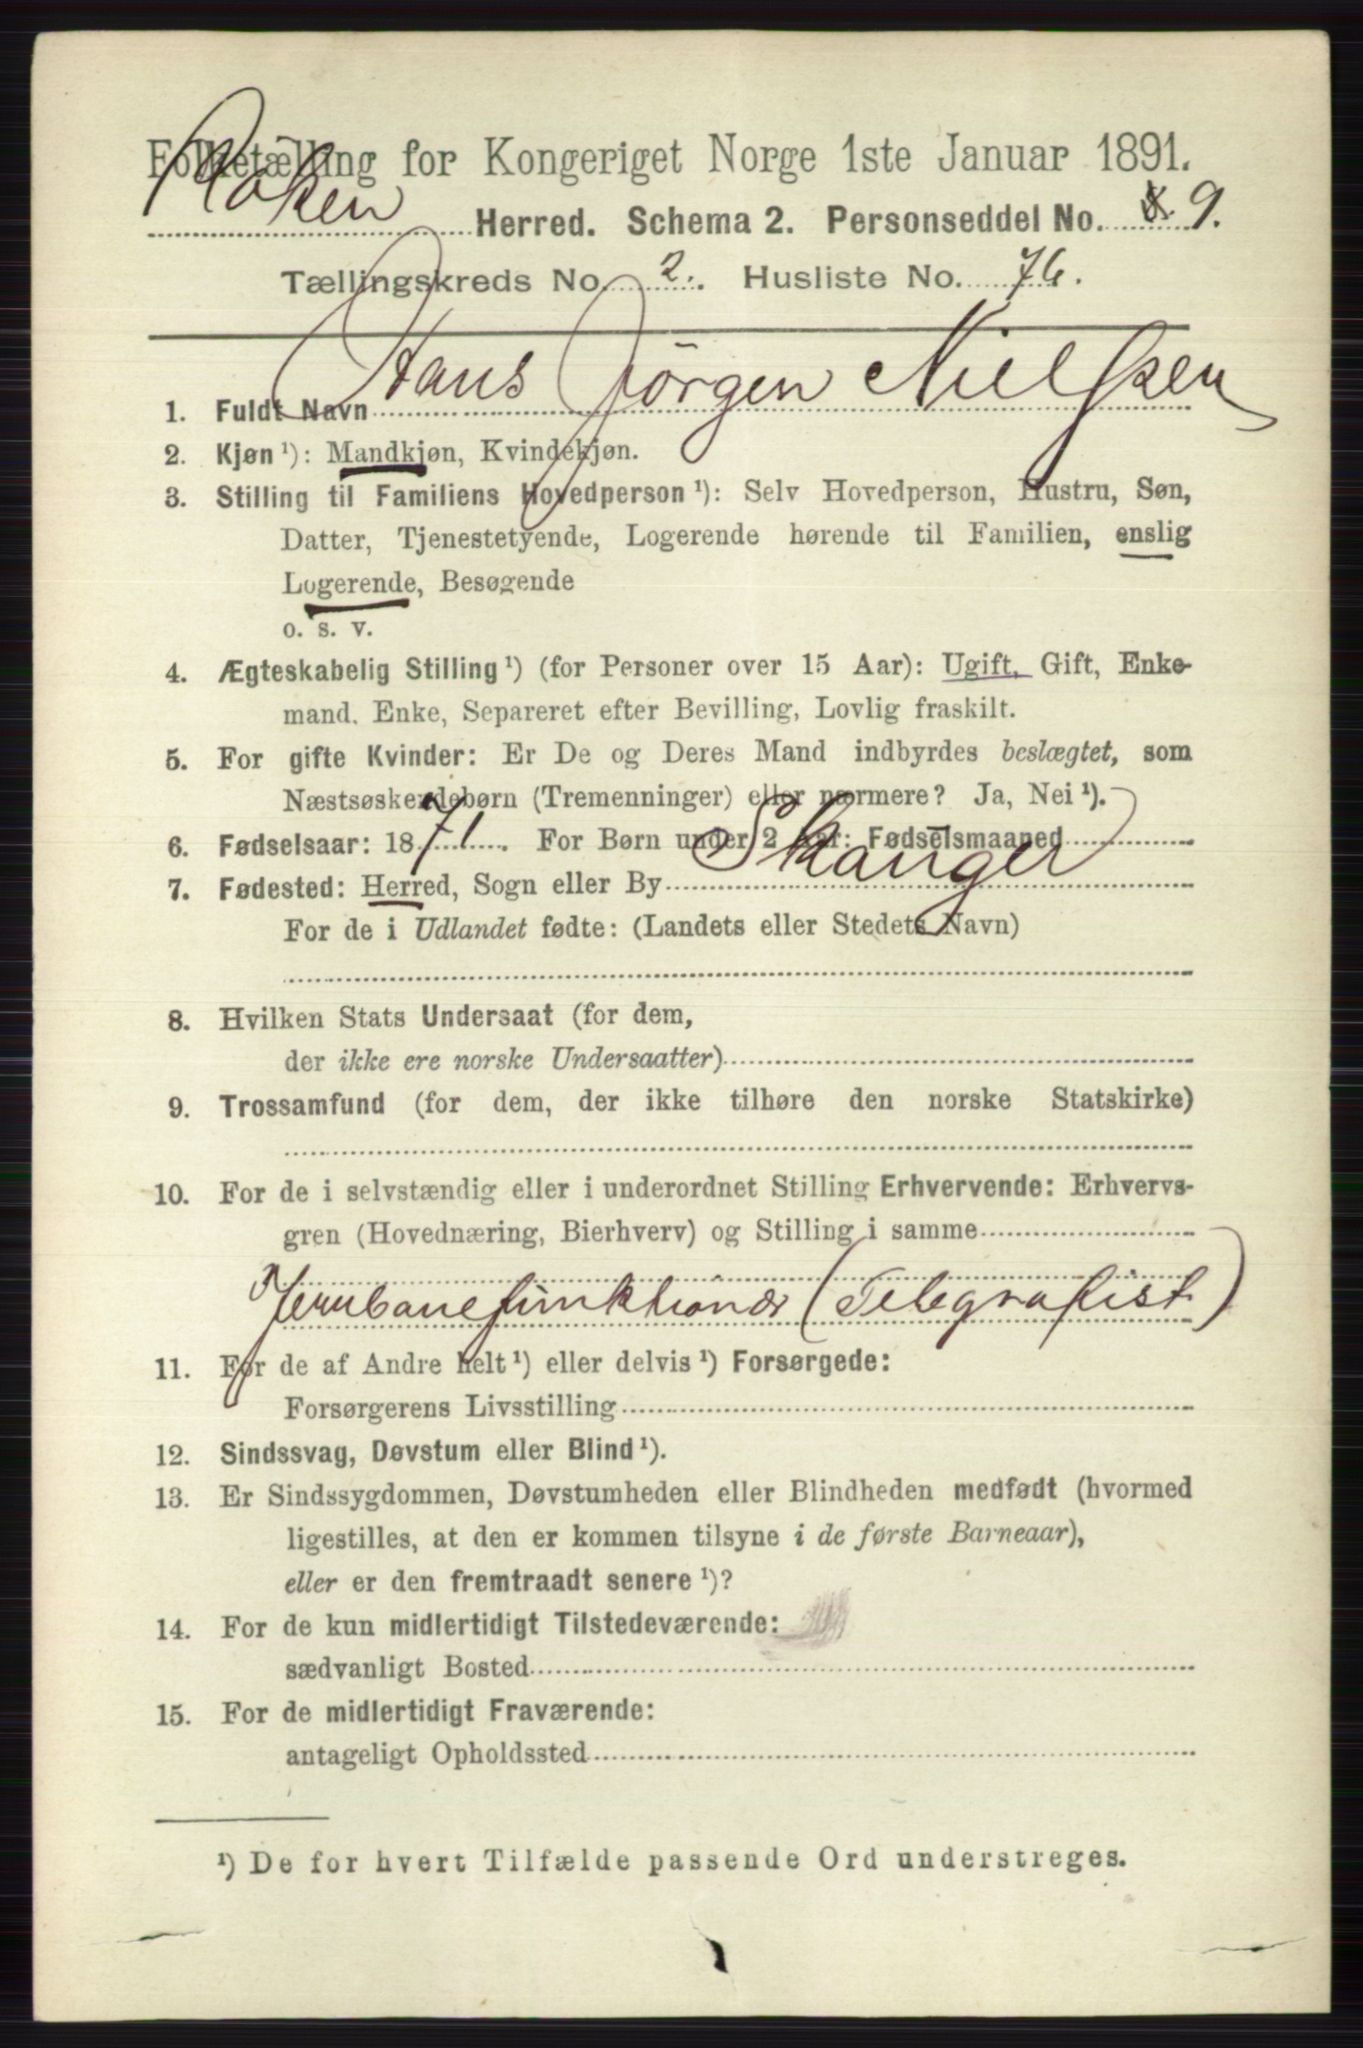 Folketælling for Kongeriget Norge 1ste Januar 1891.
Røken Herred. Schema 2. Personseddel No. 9.
Tællingskreds No. 2. Husliste No. 76.
1. Fuldt Navn Hans Jörgen Nielsen
2. Kjøn¹): Mandkjøn, Kvindekjøn.
3. Stilling til Familiens Hovedperson¹): Selv Hovedperson, Hustru, Søn,
Datter, Tjenestetyende, Logerende hørende til Familien, enslig
Logerende, Besøgende
o. s. v.
4. Ægteskabelig Stilling¹) (for Personer over 15 Aar): Ugift, Gift, Enke-
mand, Enke, Separeret efter Bevilling, Lovlig fraskilt.
5. For gifte Kvinder: Er De og Deres Mand indbyrdes beslægtet, som
Næstsøskendebørn (Tremenninger) eller nærmere? Ja, Nei¹).
6. Fødselsaar: 1871. For Børn under 2 Aar: Fødselsmaaned
7. Fødested: Herred, Sogn eller By Skauger
For de i Udlandet fødte: (Landets eller Stedets Navn)
8. Hvilken Stats Undersaat (for dem,
der ikke ere norske Undersaatter)
9. Trossamfund (for dem, der ikke tilhøre den norske Statskirke)
10. For de i selvstændig eller i underordnet Stilling Erhvervende: Erhvervs-
gren (Hovednæring, Bierhverv) og Stilling i samme
Jernbanefunktionær (Telegrafist)
11. For de af Andre helt¹) eller delvis¹) Forsørgede:
Forsørgerens Livsstilling
12. Sindssvag, Døvstum eller Blind¹).
13. Er Sindssygdommen, Døvstumheden eller Blindheden medfødt (hvormed
ligestilles, at den er kommen tilsyne i de første Barneaar),
eller er den fremtraadt senere¹)?
14. For de kun midlertidigt Tilstedeværende:
sædvanligt Bosted
15. For de midlertidigt Fraværende:
antageligt Opholdssted
¹) De for hvert Tilfælde passende Ord understreges.